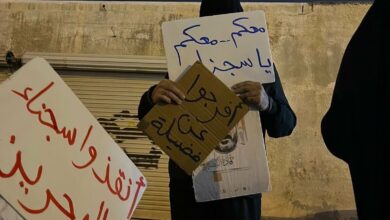 معكم..معكم
يا سجناء
أفرجوا
عن
فضيلة
أنقذوا سجناء
البحرين